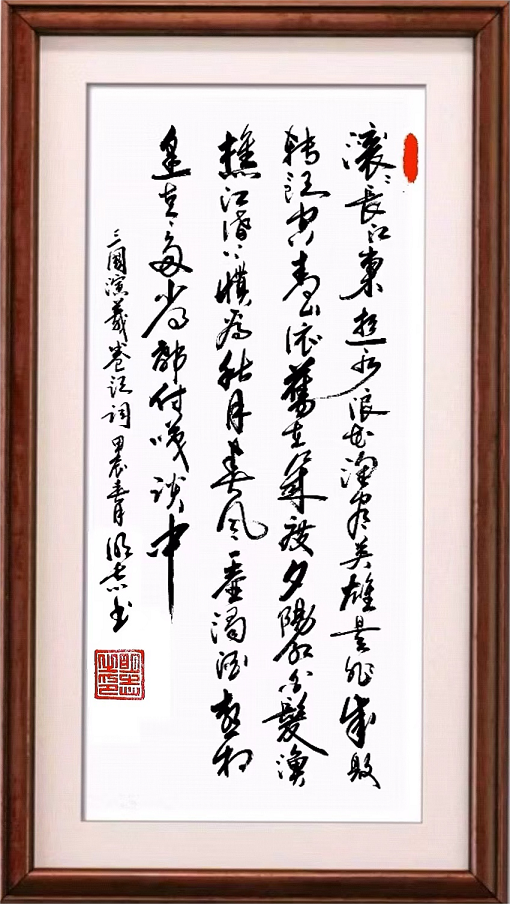 滚滚長江東逝水浪花淘尽英雄是非成敗
转头空青山依舊在几度夕陽红白髮漁
樵江渚上慣看秋月春风一壶濁酒喜相
逢古今多少事都付笑谈中
三國演義卷头词 甲辰春月明志书